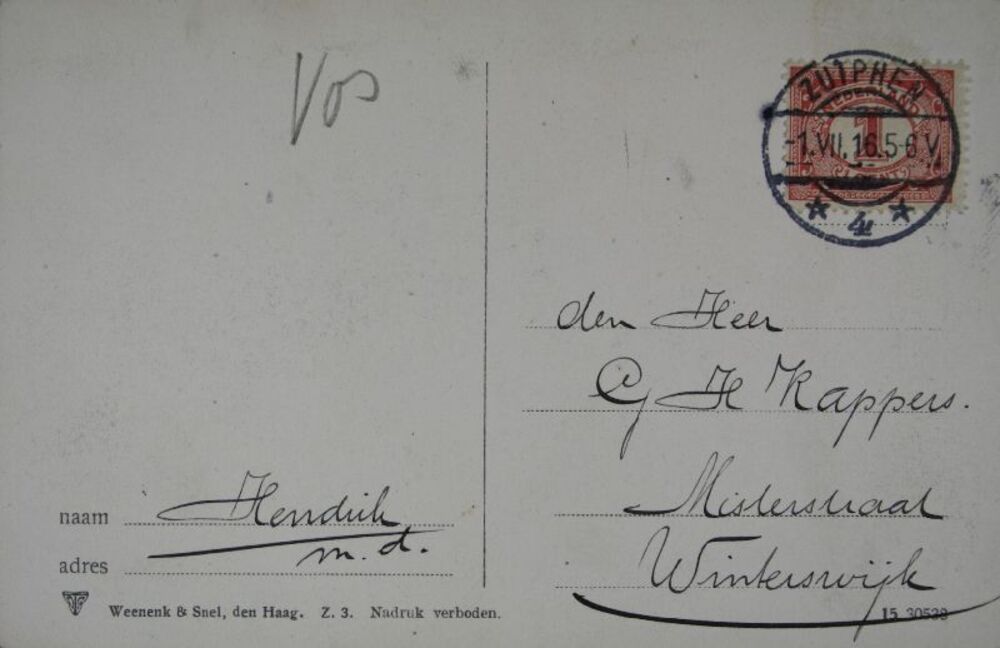 Vos
ZUTPHEN
NEDERLAND
1
-1.VII.16.5-6 V
CENT
4
den Heer
G H Kappers.
Misterstraat
Winterswijk
naam Hendrik
m.d.
adres
Weenenk & Snel, den Haag. Z. 3. Nadruk verboden.
15 30538